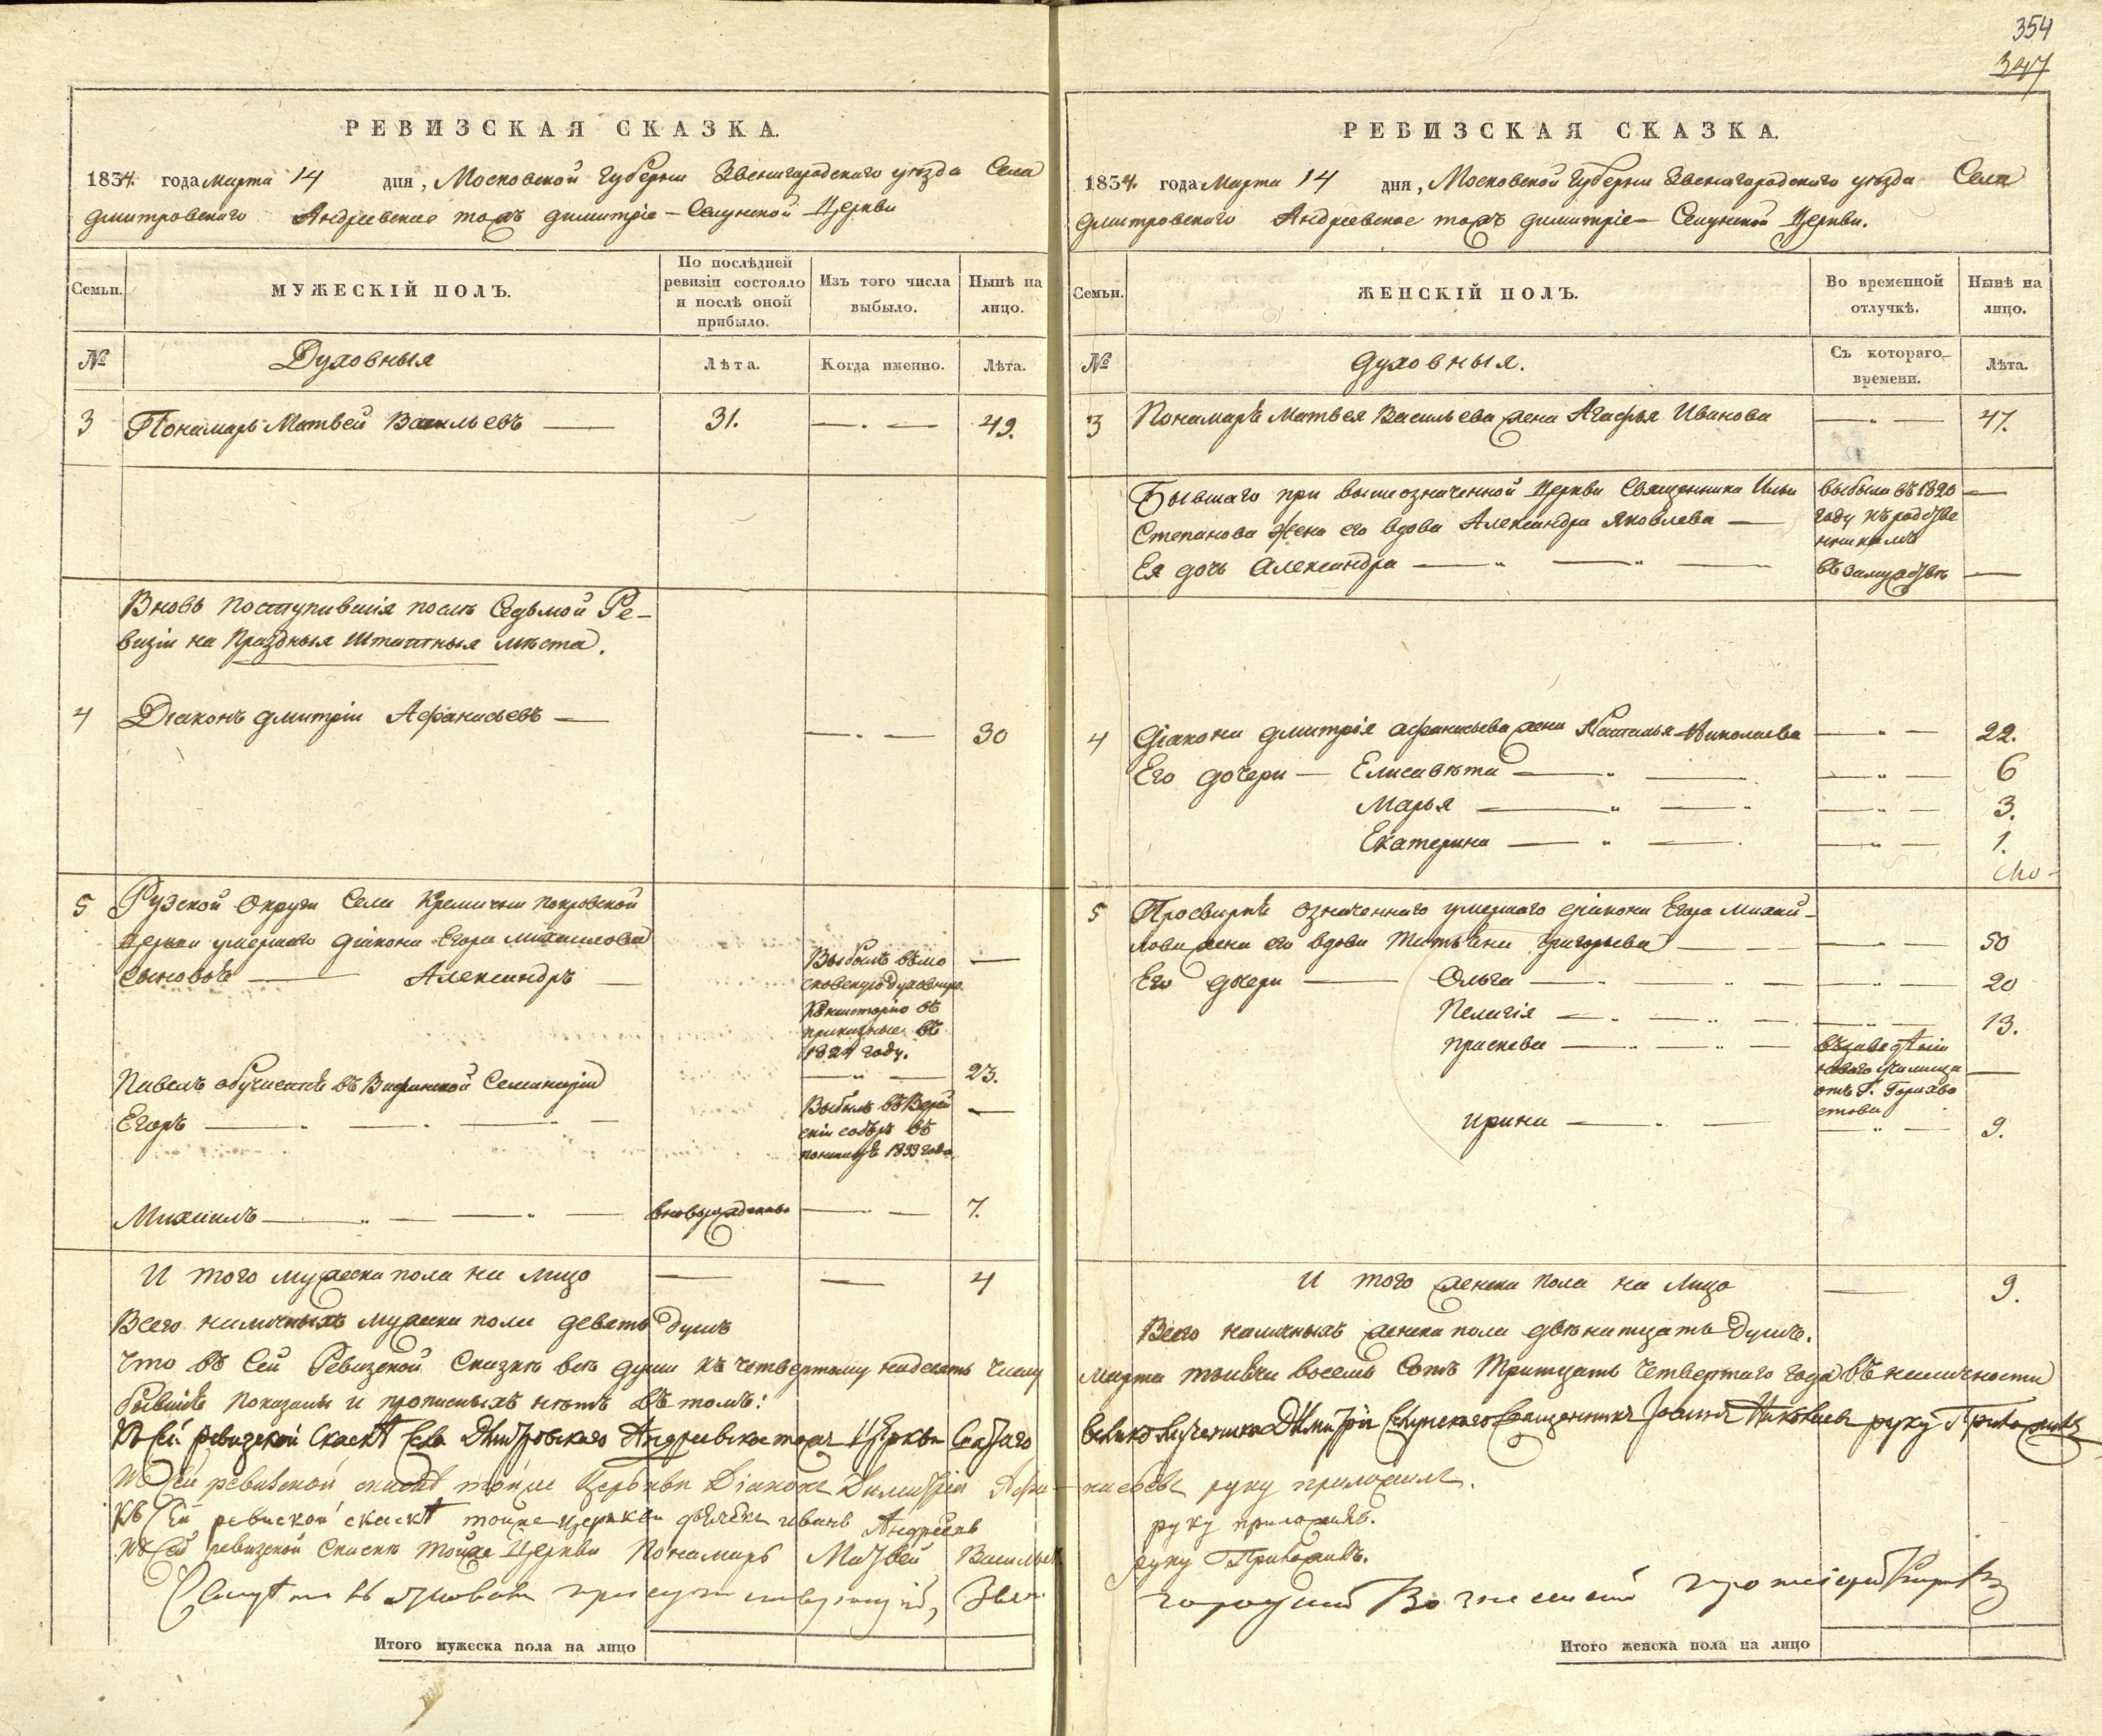 РЕВИЗСКАЯ СКАЗКА.
1834. года марта 14 дня, Московской Губернии Звенигородскаго уѣзда Села
Дмитровскаго Андреевское тожъ Димитріе-Селунской Церкви
Семьи.
МУЖЕСКІЙ ПОЛЪ.
По послѣдней ревизіи состояло и послѣ оной прибыло.
Изъ того числа выбыло.
Нынѣ на лицо.
№
Духовныя
Лѣта.
Когда именно.
Лѣта.
3 Пономарь Матвей Васильевъ — 31. — 49.
Вновь поступившія послѣ Седьмой Ре-
визіи на Праздныя Штатныя мѣста.
4 Діаконъ Дмитріи Афанасьевъ — 30
5 Рузской Округи Села Кремични Покровской
Церкви умершаго діакона Егора Михаилова
сыновья — Александръ —
Выбылъ въ Мо
сковскую Духовную
Консисторію въ
приказные въ
182 году.
Павелъ обучается въ Вифанской Семинаріи — 23.
Егоръ —
Выбылъ въ Верей
скіи соборъ въ
1833 года
Михаилъ — вновьрожденны — 7.
И того мужеска пола на лицо — — 4
Всего наличныхъ мужеска пола девять душъ
Что въ Сей Ревизской Сказкѣ всѣ души къ четвертому надесять числу
показаны и прописныхъ нѣтъ въ томъ:
Къ Сей ревизской Скаскѣ Села Дмитровскаго Андреевское тожъ Церкви Святаго
Къ Сей ревизской скаскѣ тойже Церькви Діаконъ Димитріи Афа-
Къ Сей ревиской скаскѣ тойже церкви дьячекъ Иванъ Андреевъ
Къ Сей ревизской Скаскѣ тойже Церкви Пономарь Матвей Васильевъ
присутствующій, Звени
Итого мужеска пола на лицо
354
347
РЕВИЗСКАЯ СКАЗКА.
1834. года Марта 14 дня, Московской Губерніи Звенигородскаго уѣзда Села
Дмитровскаго Андреевское тожъ Димитріе-Селунской Церкви.
Семьи.
ЖЕНСКІЙ ПОЛЪ.
Во временной отлучкѣ.
Нынѣ на лицо.
№
Духовныя.
Съ котораго времени.
Лѣта.
3 Пономаря Матвея Васильева жена Агафья Иванова — 47.
Бывшаго при вышеозначенной Церкви Священника Ильи
Степанова жена его вдова Александра Яковлева —
выбыла въ 1820
году къ родстве
нникамъ
Ея дочь Александра — въ замужствѣ —
4 Діакона Дмитрія Афанасьева жена Наталья Николаева — 22.
Его дочери — Елисавѣта — 6
Марья — 3.
Екатерина — 1.
5 Просвирня означеннаго умершаго діакона Егора Михаи-
лова жена его вдова Татьяна Григорьева — 50
Его дочери — Ольга — 20
Пелагія — 13.
Прасковья —
въ заведѣніи
училища
отъ Г. Горихво
стова
Ирина — 9.
И того женска пола на Лицо — 9.
Всего наличныхъ женска пола двѣнатцать Душъ.
марта тысячи восемь Сотъ Тритцать четвертаго года въ наличности
великомученика Димитрія Селунскаго Священникъ Іоаннъ руку Приложилъ
насьевъ руку приложилъ.
руку приложилъ.
руку Приложилъ.
городскій
Итого женска пола на лицо